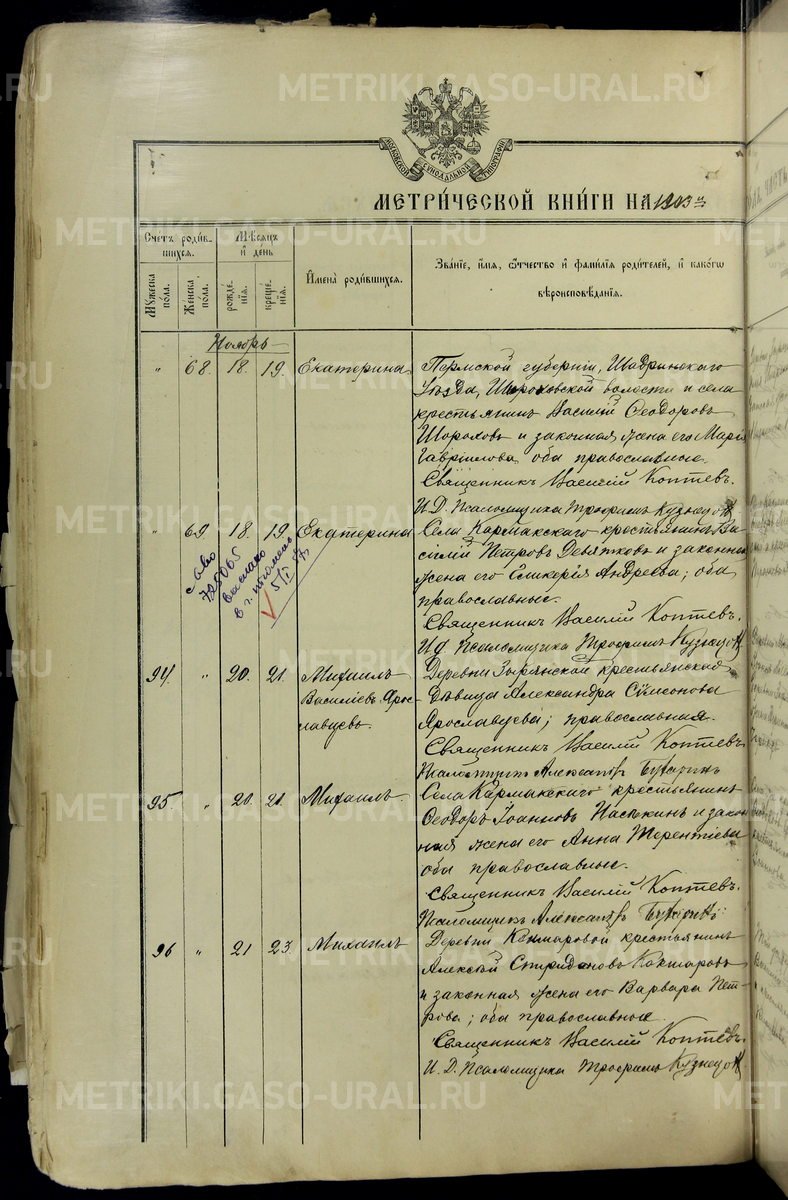 METRIKI.GASO-URAL.RU
МОСКОВСКОЙ СѴНОДАЛЬНОЙ ТИПОГРАФІИ
МЕТРИ́ЧЕСКОЙ КНИ́ГИ НА 1903 г.
Счетъ роди́вшихся.
Мꙋжеска по́ла.
Же́нска по́ла.
Мѣ́сяцъ и҆ де́нь
рожде́нїѧ.
креще́нїѧ.
И҆мена̀ роди́вшихсѧ.
Зва́нїе, и҆́мѧ, ѻ҆́тчество и҆ фами́лїѧ роди́телей, и҆ како́гѡ вѣроисповѣ́данїѧ.
Ноябрь
" 68. 18. 19. Екатерина
Пермской губерніи, Шадринскаго
уѣзда, Широковской волости и села
крестьянинъ Василій Ѳеодоровъ
Шороховъ и законная жена его Марія
Гавріилова оба православные.
Священникъ Василій Коптевъ.
И.Д. Псаломщика Трофимъ Кузнецов
" 69. 18. 19. Екатерина
Села Кармакскаго крестьянинъ Ва-
силій Петровъ Девятковъ и законная
жена его Гликерія Андреева; оба
православные.
Священникъ Василій Коптевъ.
И д. Псаломщика Трофимъ Кузнецов
с-во
725065
выслано
в г.
5/I 57г
94. " 20. 21. Михаилъ
Василіевъ Ярос-
лавцевъ.
Деревни Зырянской крестьянская
дѣвица Александра Сѵмеонова
Ярославцева; православная.
Священникъ Василій Коптевъ
Псаломщикъ Александръ
95. " 20. 21. Михаилъ.
Села Кармакскаго крестьянинъ
Ѳеодоръ Іоанновъ Пасѣкинъ и закон-
ная жена его Анна Терентіева
оба православные.
Священникъ Василій Коптевъ.
Псаломщикъ Александръ
96 " 21 23. Михаилъ
Деревни Кокшаровой крестьянинъ
Алексѣй Спиридоновъ Кокшаровъ
и законная жена его Варвара Пет-
рова; оба православные.
Священникъ Василій Коптевъ.
И. Д. Псаломщика Трофимъ Кузнецов